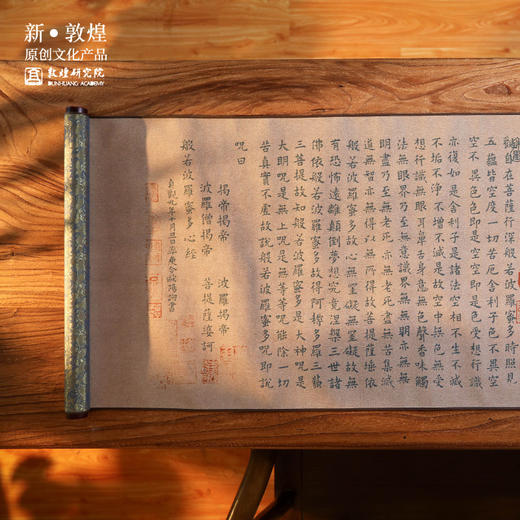 新·敦煌
原创文化产品
敦煌研究院
DUNHUANG ACADEMY
觀自在菩薩行深般若波羅蜜多時照見
五蘊皆空度一切苦厄舍利子色不異空
空不異色色即是空空即是色受想行識
亦復如是舍利子是諸法空相不生不滅
不垢不淨不增不減是故空中無色無受
想行識無眼耳鼻舌身意無色聲香味觸
法無眼界乃至無意識界無無明亦無無
明盡乃至無老死亦無老死盡無苦集滅
道無智亦無得以無所得故菩提薩埵依
般若波羅蜜多故心無罣礙無罣礙故無
有恐怖遠離顛倒夢想究竟涅槃三世諸
佛依般若波羅蜜多故得阿耨多羅三藐
三菩提故知般若波羅蜜多是大神呪是
大明呪是無上呪是無等等呪能除一切
苦真實不虛故說般若波羅蜜多呪即說
呪曰
揭帝揭帝 波羅揭帝
波羅僧揭帝 菩提薩婆訶
般若波羅蜜多心經
貞觀九年十月旦日率更令歐陽詢書